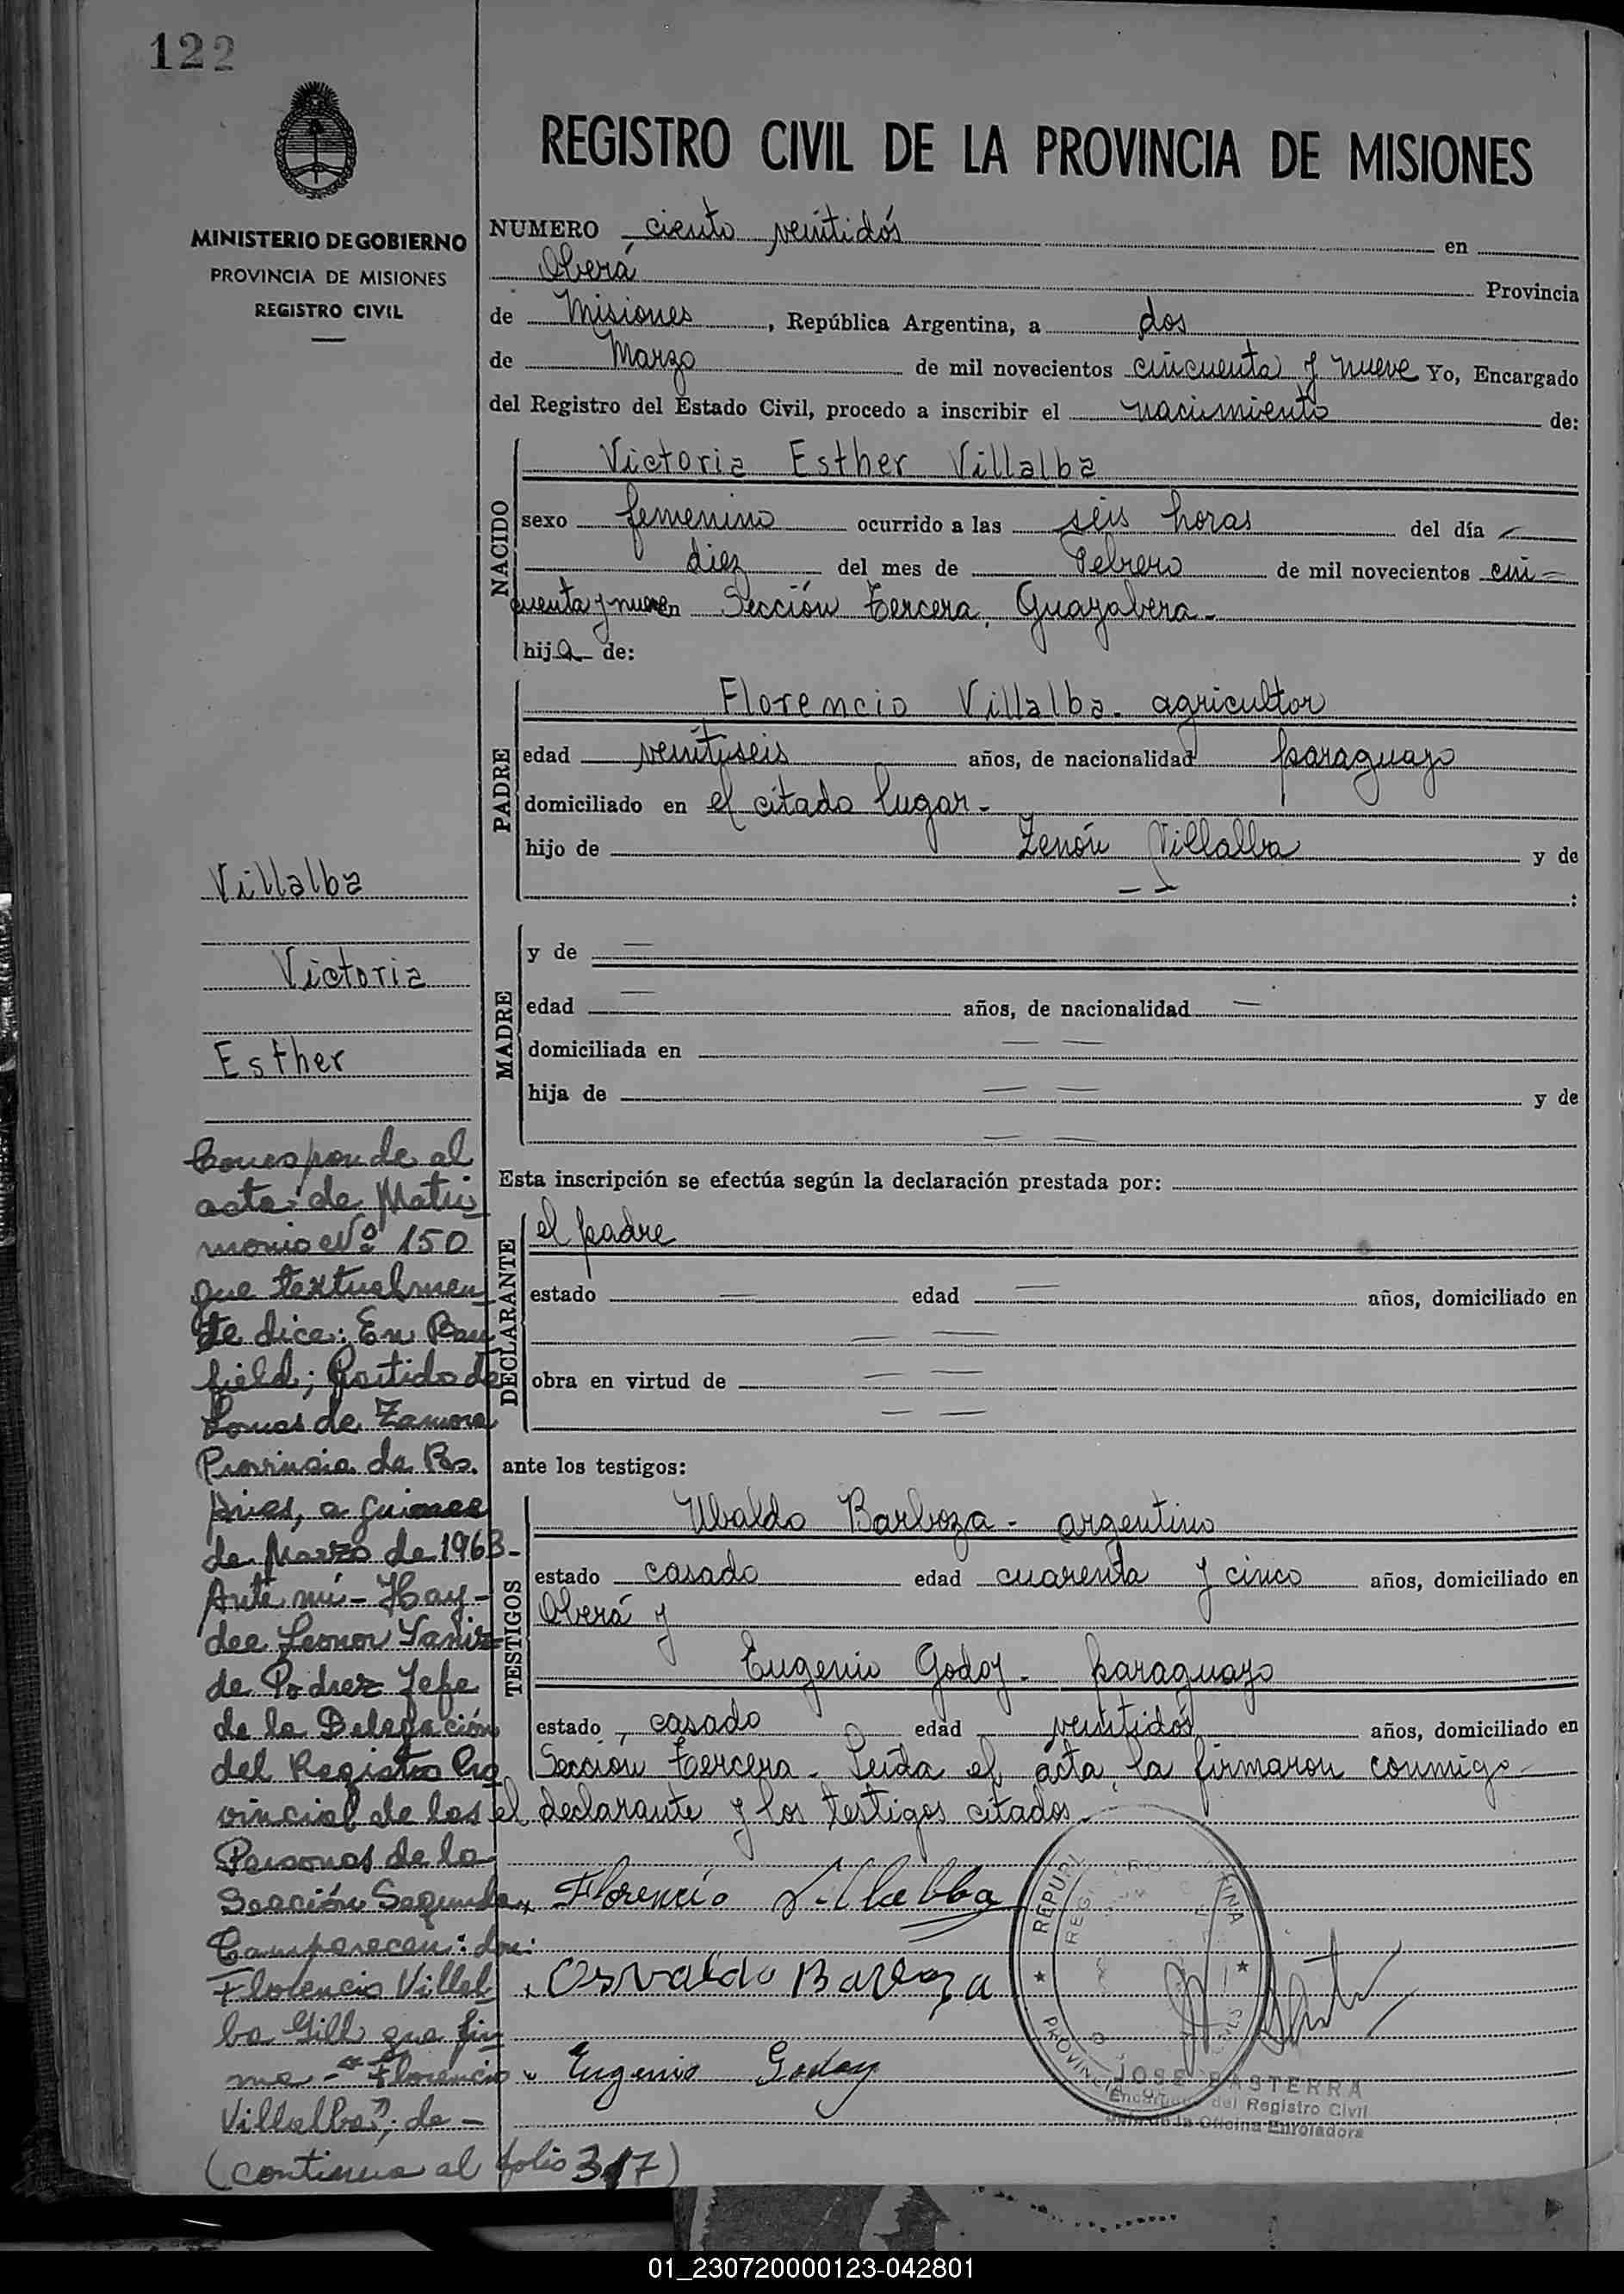 122
REGISTRO CIVIL DE LA PROVINCIA DE MISIONES
MINISTERIO DE GOBIERNO
PROVINCIA DE MISIONES
REGISTRO CIVIL
NUMERO ciento veintidós en
Oberá Provincia
de Misiones, República Argentina, a dos
de Marzo de mil novecientos cincuenta y nueve Yo, Encargado
del Registro del Estado Civil, procedo a inscribir el nacimiento de:
NACIDO
Victoria Esther Villalba
sexo femenino ocurrido a las seis horas del día
diez del mes de Febrero de mil novecientos cin=
cuenta y nueve en Sección tercera, Guayabera.
hija de:
PADRE
Florencio Villalba. agricultor
edad veintiseis años, de nacionalidad paraguayo
domiciliado en el citado lugar.
hijo de Zenón Villalba y de
— — :
MADRE
y de —
edad — años, de nacionalidad —
domiciliada en — —
hija de — — y de
— —
Esta inscripción se efectúa según la declaración prestada por:
DECLARANTE
el padre
estado — edad — años, domiciliado en
— —
obra en virtud de — —
— —
ante los testigos:
TESTIGOS
Ubaldo Barboza - argentino
estado casado edad cuarenta y cinco años, domiciliado en
Oberá y
Eugenio Godoy - paraguayo
estado casado edad veintidós años, domiciliado en
Sección tercera. Leída el acta, la firmaron conmigo
el declarante y los testigos citados.
Florencio Villalba
Osvaldo Barboza
Eugenio Godoy
JOSE BASTERRA
Encargado del Registro Civil
de la Oficina Enroladora
REPUBL
PROVINCIA
Villalba
Victoria
Esther
Corresponde al
acta de Matri
monio Nº 150
que textualmen
te dice: En Ban
field; Partido de
Lomas de Zamora
Provincia de Bs.
Aires, a quince
de Marzo de 1963-
Ante mí - Hay-
dee Leonor
de Jefe
de la Delegación
del Registro Pro
vincial de las
Personas de la
Sección Segunda
Comparecen: don:
Florencio Villal
ba Gill que fir
ma - "Florencio
Villalba"; de -
(continua al folio 317)
01_230720000123-042801